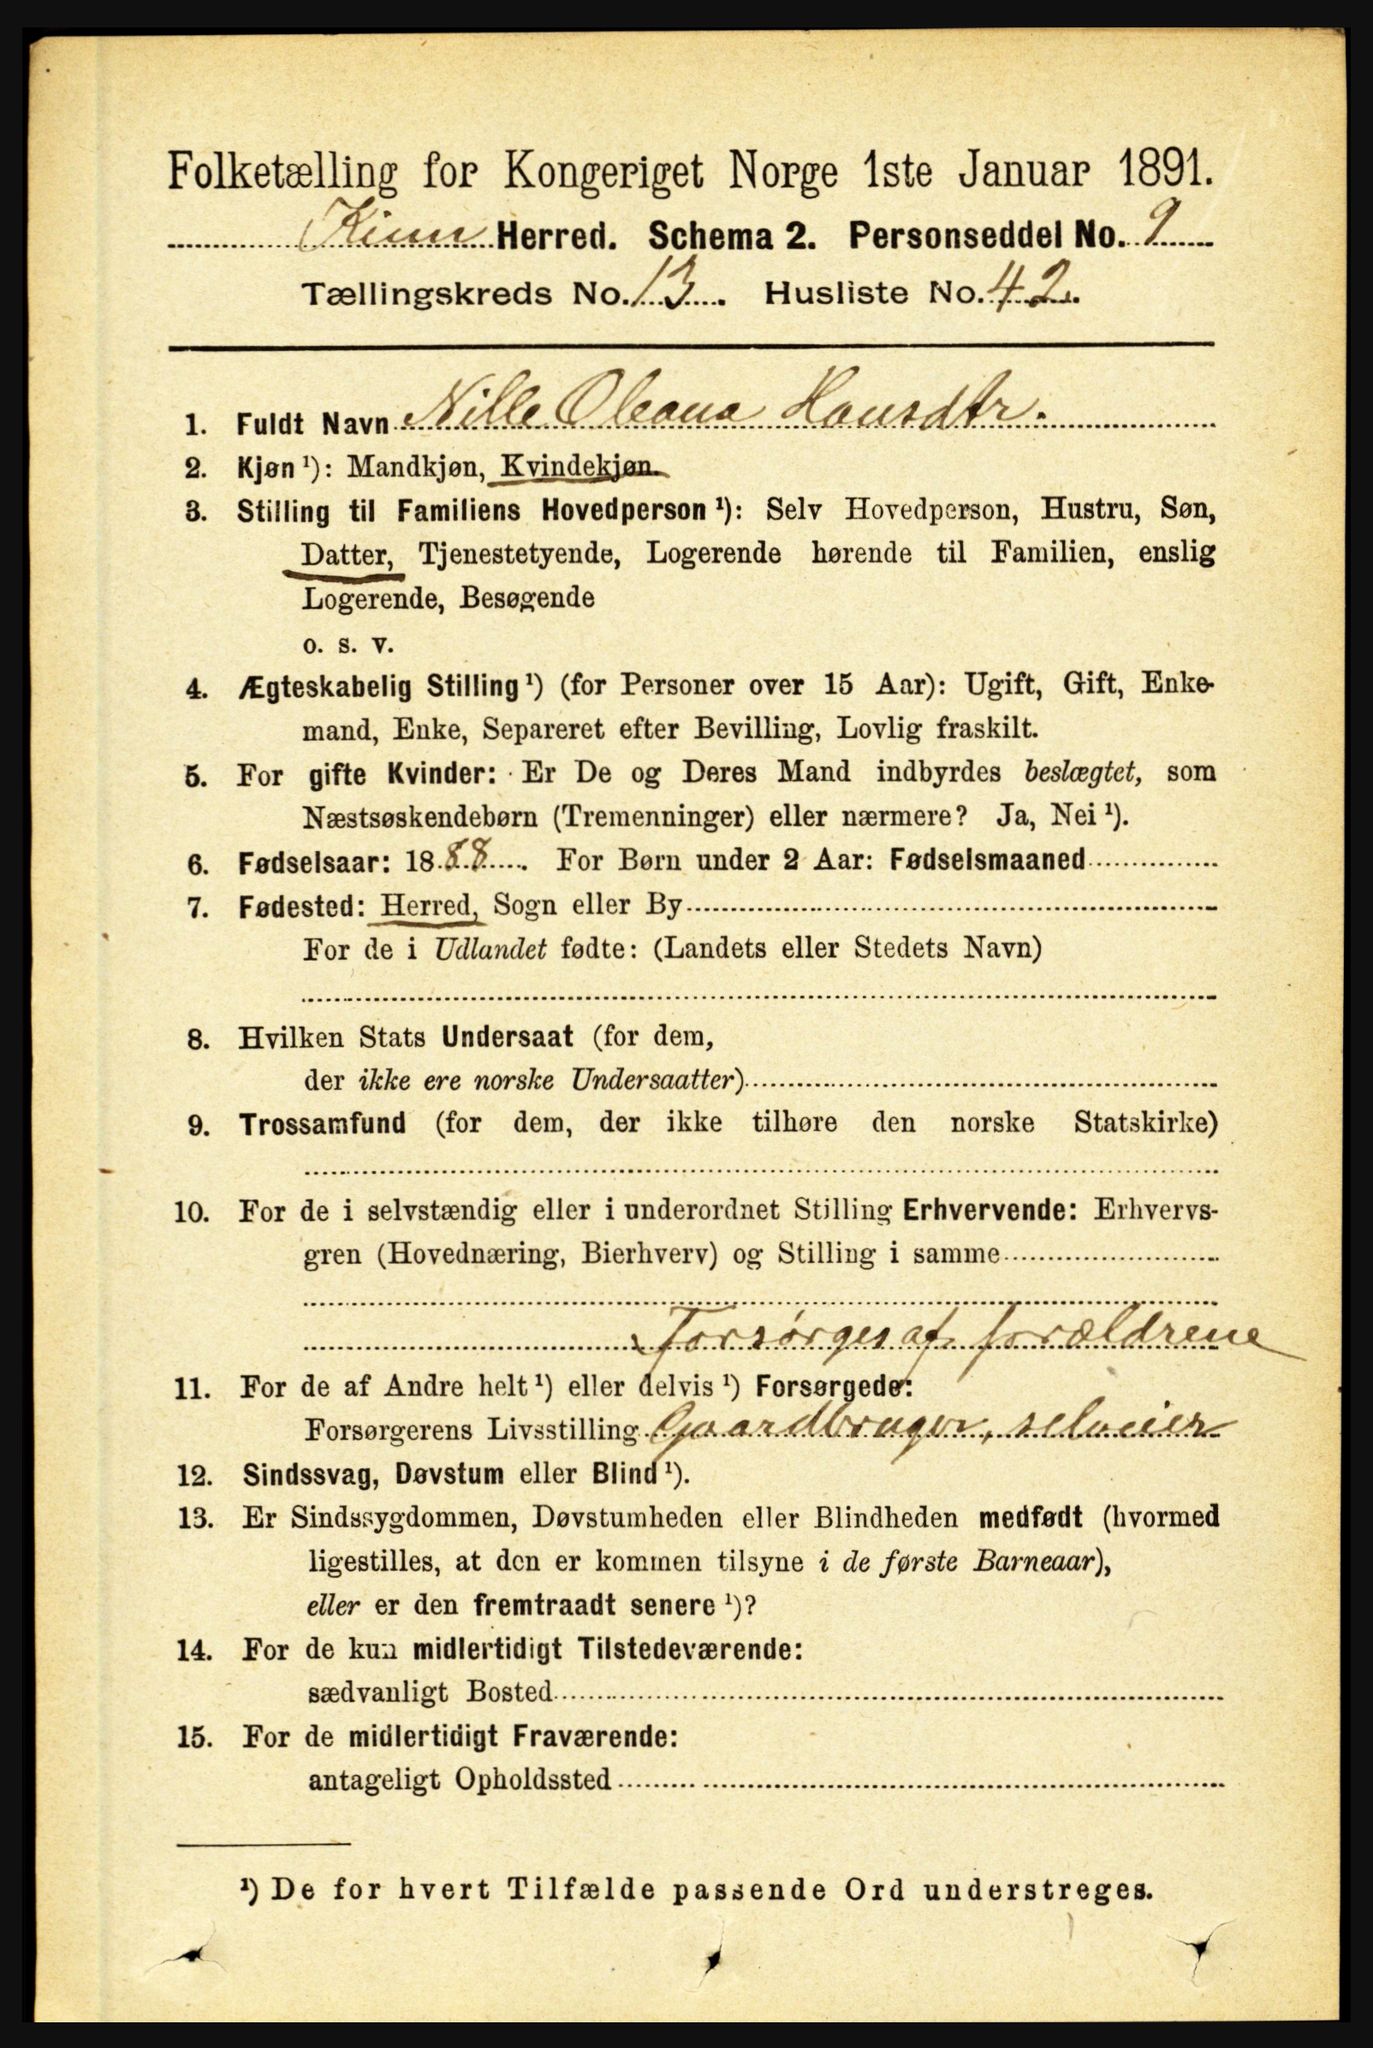 Folketælling for Kongeriget Norge 1ste Januar 1891.
Kinn Herred. Schema 2. Personseddel No. 9
Tællingskreds No. 13. Husliste No. 42.
1. Fuldt Navn Nille Oleana Hansdtr.
2. Kjøn ¹): Mandkjøn, Kvindekjøn.
3. Stilling til Familiens Hovedperson ¹): Selv Hovedperson, Hustru, Søn,
Datter, Tjenestetyende, Logerende hørende til Familien, enslig
Logerende, Besøgende
o. s. v.
4. Ægteskabelig Stilling ¹) (for Personer over 15 Aar): Ugift, Gift, Enke-
mand, Enke, Separeret efter Bevilling, Lovlig fraskilt.
5. For gifte Kvinder: Er De og Deres Mand indbyrdes beslægtet, som
Næstsøskendebørn (Tremenninger) eller nærmere? Ja, Nei ¹).
6. Fødselsaar: 1888. For Børn under 2 Aar: Fødselsmaaned
7. Fødested: Herred, Sogn eller By
For de i Udlandet fødte: (Landets eller Stedets Navn)
8. Hvilken Stats Undersaat (for dem,
der ikke ere norske Undersaatter)
9. Trossamfund (for dem, der ikke tilhøre den norske Statskirke)
10. For de i selvstændig eller i underordnet Stilling Erhvervende: Erhvervs-
gren (Hovednæring, Bierhverv) og Stilling i samme
Forsørges af forældrene
11. For de af Andre helt ¹) eller delvis ¹) Forsørgede:
Forsørgerens Livsstilling Gaardbruger, selveier
12. Sindssvag, Døvstum eller Blind ¹).
13. Er Sindssygdommen, Døvstumheden eller Blindheden medfødt (hvormed
ligestilles, at den er kommen tilsyne i de første Barneaar),
eller er den fremtraadt senere ¹)?
14. For de kun midlertidigt Tilstedeværende:
sædvanligt Bosted
15. For de midlertidigt Fraværende:
antageligt Opholdssted
¹) De for hvert Tilfælde passende Ord understreges.